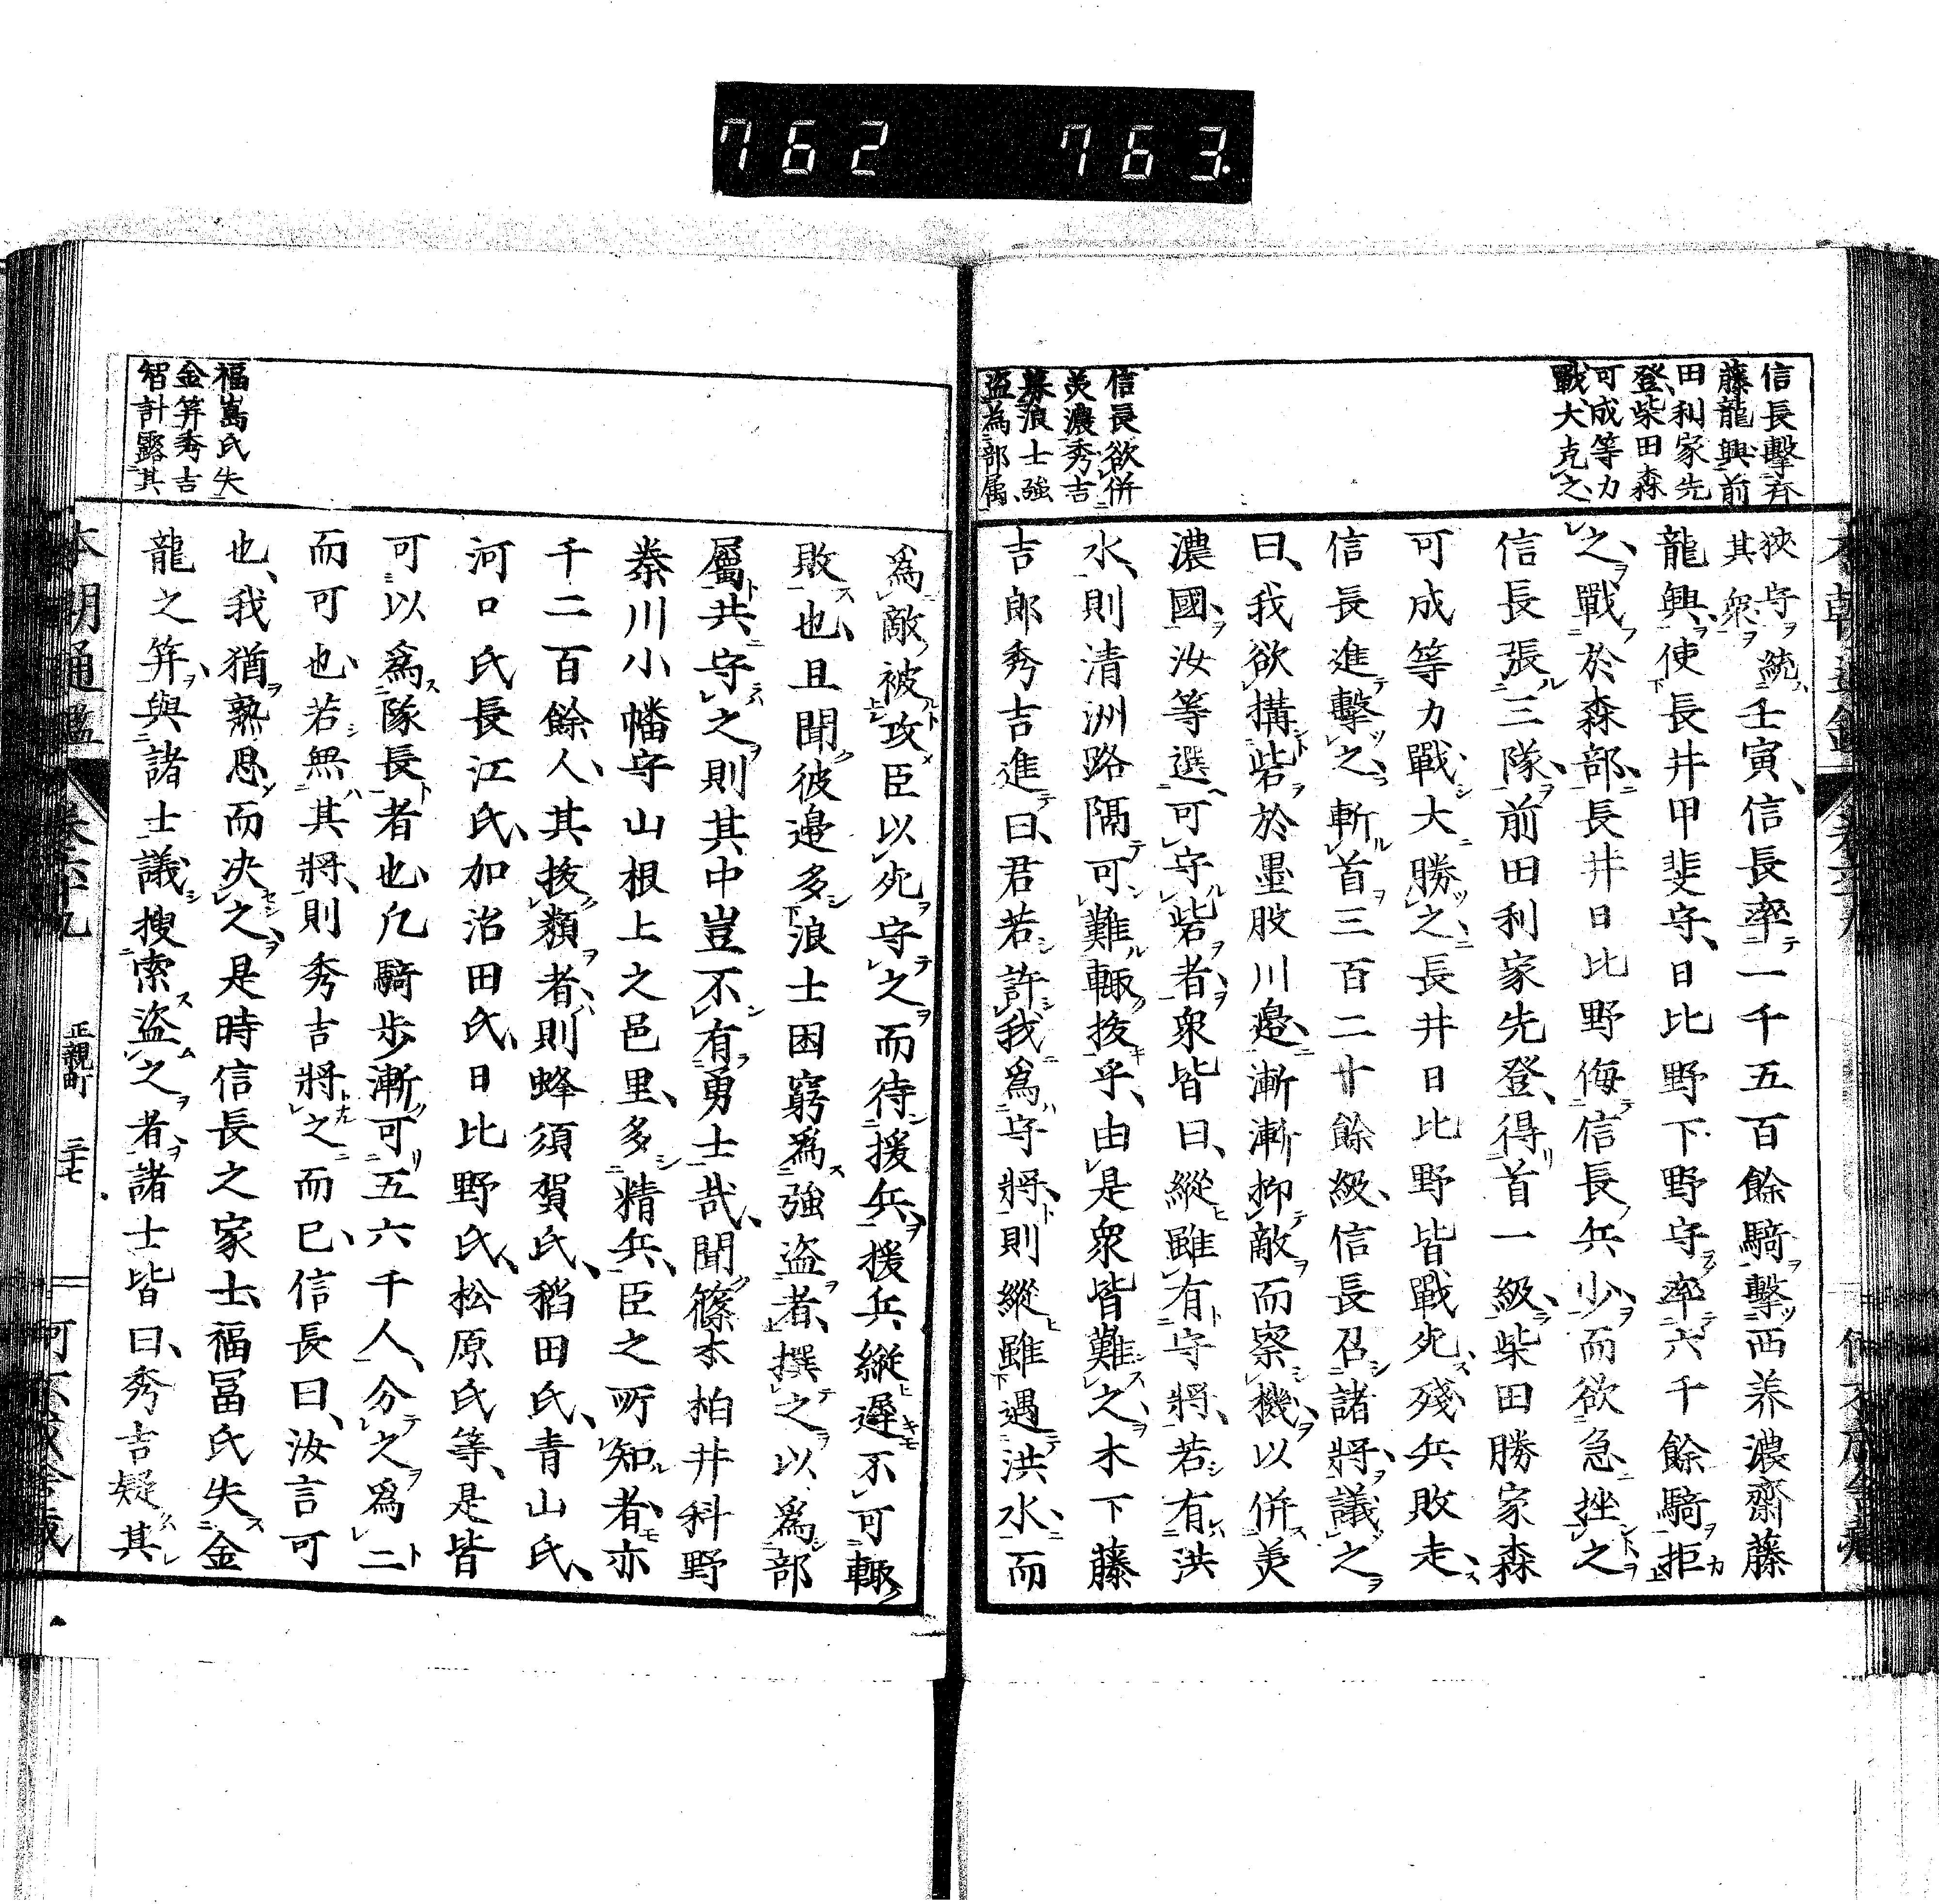 762 763.
信長擊斉
藤龍興前
田利家先
登柴田森
可成等力
戰大克之
信長欲併
美濃秀吉
募浪士強
盗為部属
狹守統
其衆
壬寅、信長率一千五百餘騎擊西美濃齋藤
龍興、使長井甲斐守、日比野下野守率六千餘騎拒
之、戰於森部、長井日比野侮信長兵少、而欲急挫之
信長張三隊、前田利家先登、得首一級、柴田勝家森
可成等力戰大勝之、長井日比野皆戰死、殘兵敗走、
信長進擊之、斬首三百二十餘級、信長召諸將、議之
曰、我欲搆砦於墨股川邉、漸漸抑敵而察機、以併美
濃國、汝等選可守砦者、衆皆曰、縱雖有守將、若有洪
水、則清洲路隔、可難輙拔乎、由是衆皆難之、木下藤
吉郎秀吉進曰、君若許我爲守將、則縱雖遇洪水、而
爲敵被攻臣以死守之而待援兵、援兵縱遲不可輙
敗也、且聞彼邉多浪士困窮爲強盗者、撰之以爲部
屬、共守之則其中豈不有勇士哉、聞篠木柏井科野
秦川小幡守山根上之邑里、多精兵、臣之所知者、亦
千二百餘人、其拔類者、則蜂須賀氏、稻田氏、青山氏、
河口氏長江氏、加治田氏、日比野氏、松原氏等、是皆
可以爲隊長者也、凡騎歩漸可五六千人、分之爲二
而可也、若無其將、則秀吉將之而已、信長曰、汝言可
也、我猶熟思而決之、是時信長之家士、福冨氏失金
龍之筭、與諸士議搜索盗之者、諸士皆曰、秀吉疑其
福嶌氏失
金筭秀吉
智計露其
本朝通鑑 卷六十九 正親町 三十七